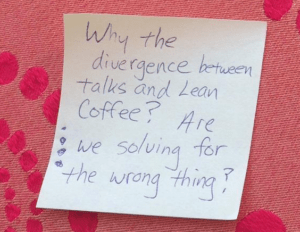 Why the
divergence between
talks and Lean
Coffee? Are
we solving for
the wrong thing?